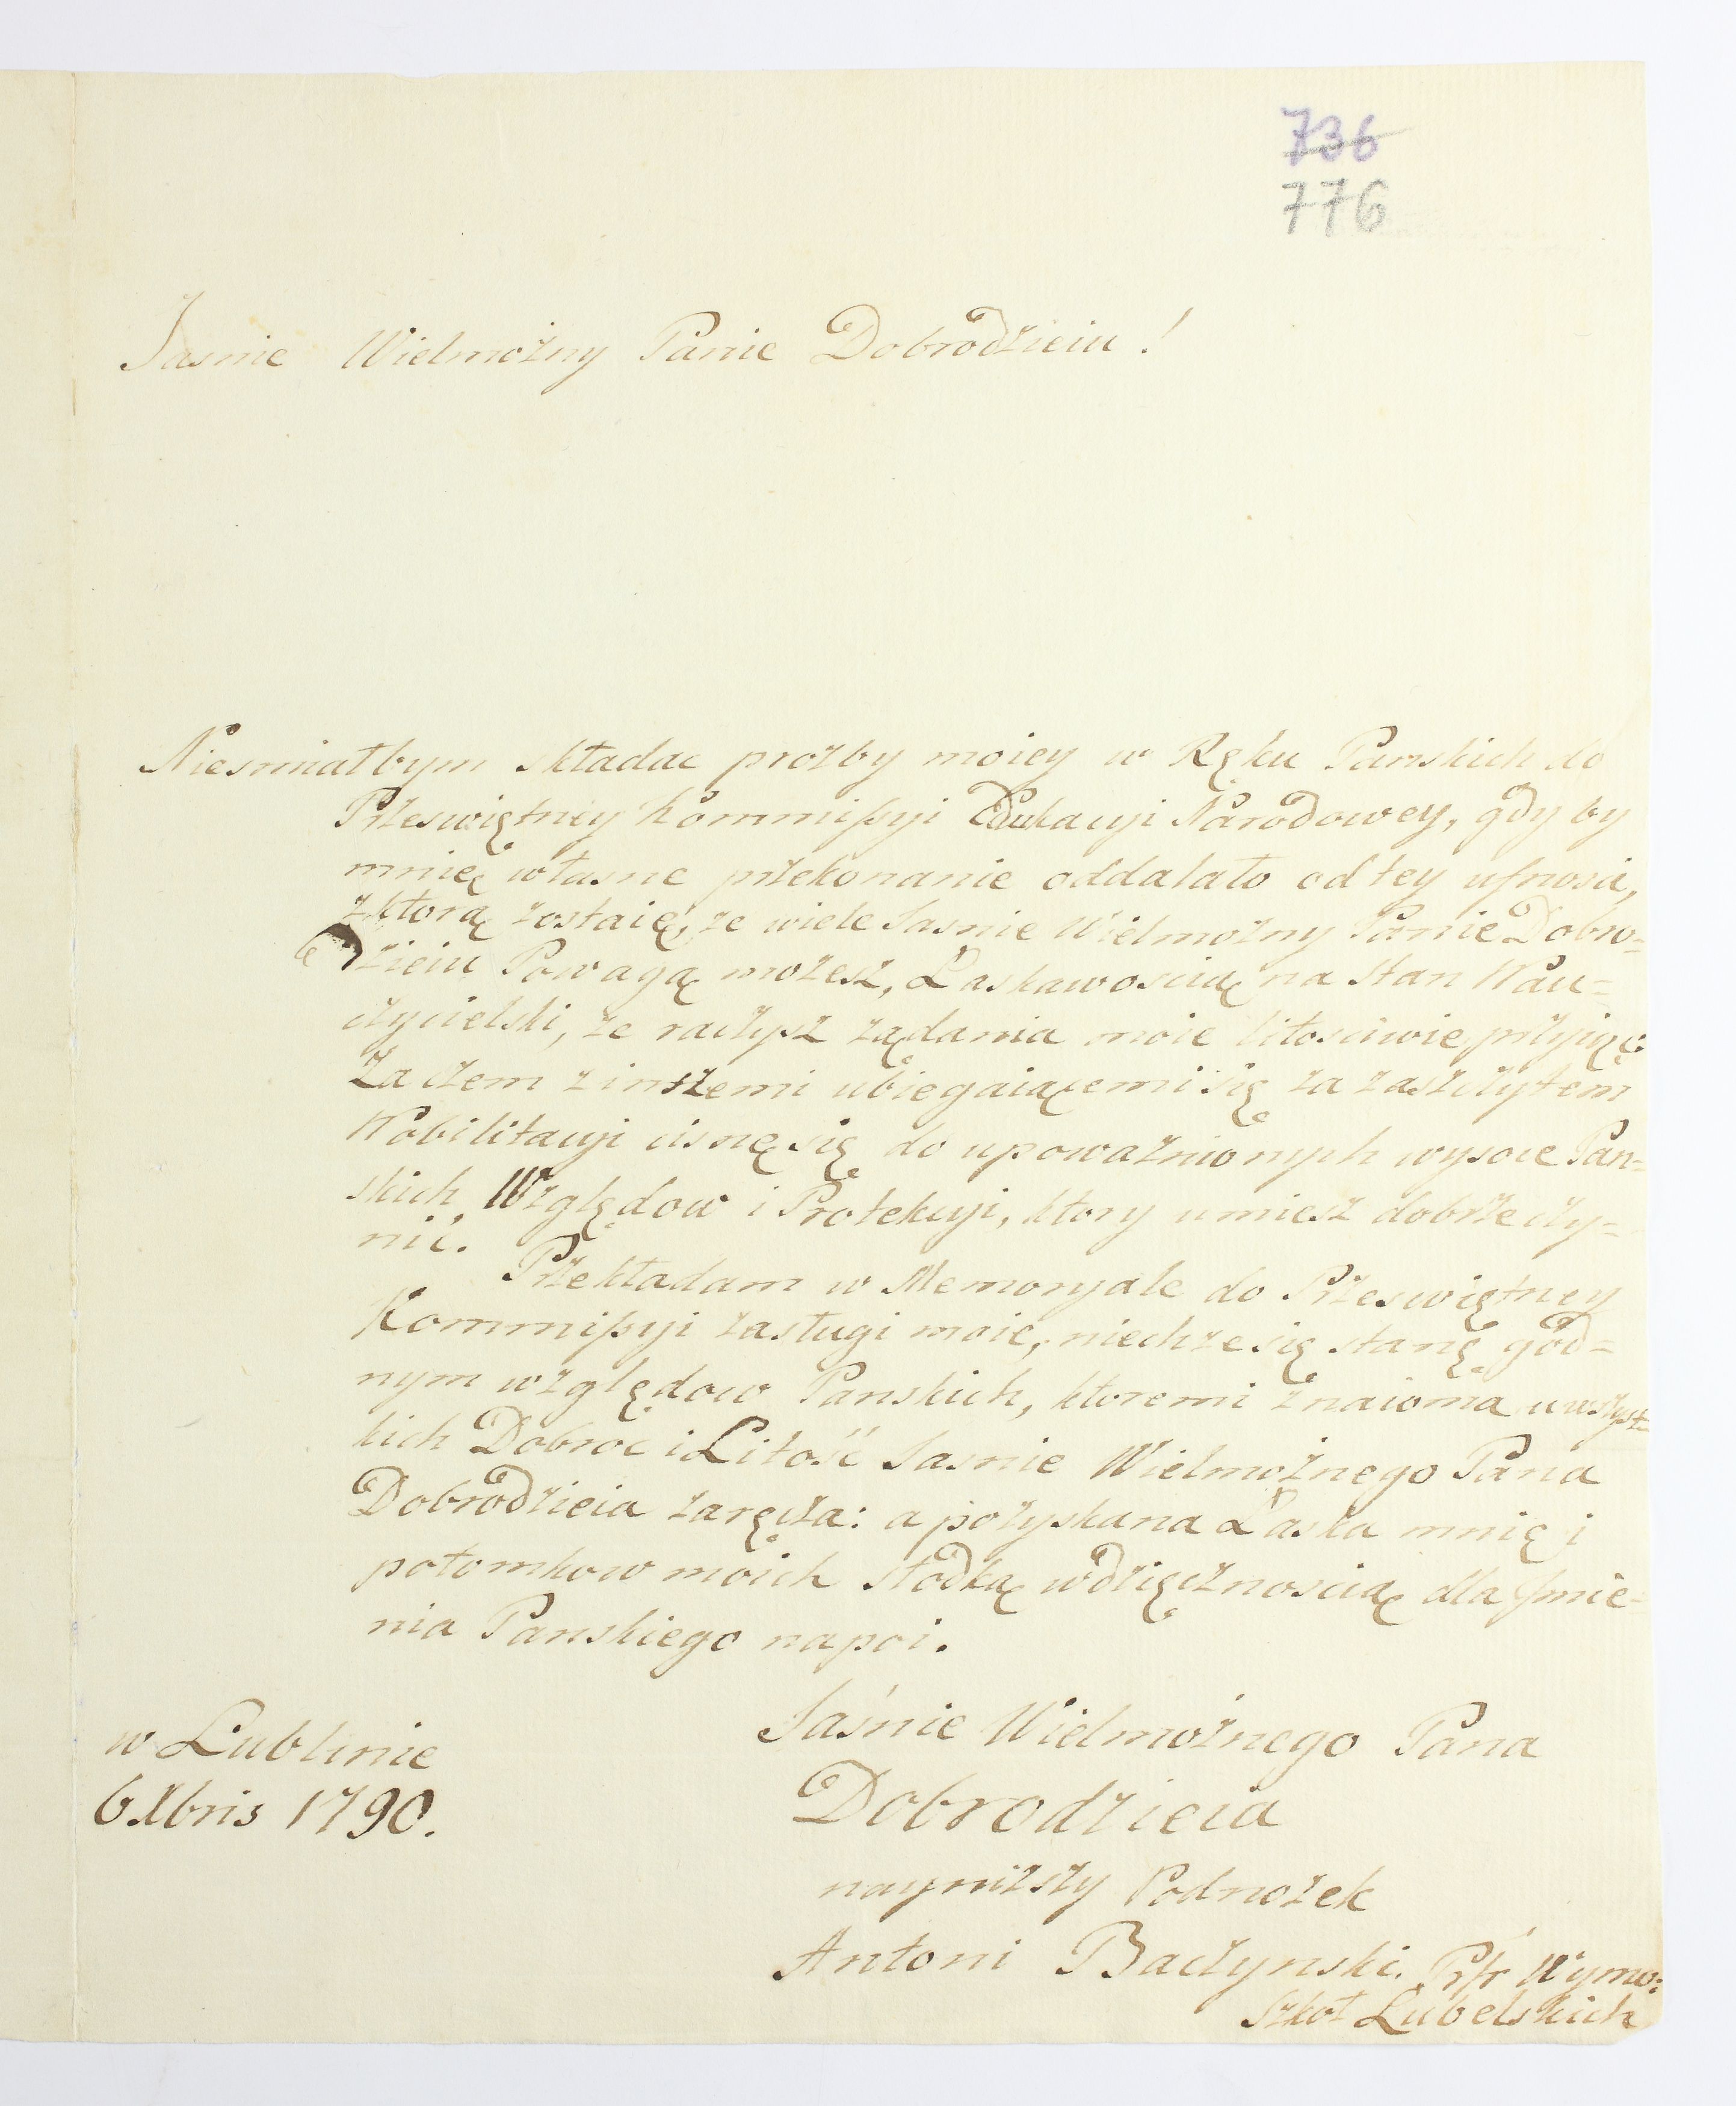 736
776
Jasnie Wielmożny Panie Dobrodzieiu!
Niesmiałbym składac prożby moiey w Ręku Panskich do
Przeświętney Kommißyi Edukacyi Narodowey, gdy by
mnię własne przekonanie oddalało od tey ufnosci,
z którą zostaię, że wiele Jasnie Wielmożny Panie Dobro=
dzieiu Powagą możesz, Łaskawoscią na Stan Nau=
czycielski, że raczysz żądania moie litosciwie przyiąć:
Za czem z inszemi ubiegaiącemi się za zaszczytem
Nobilitacyi cisnę się do upoważnionych wysoce Pan=
skich Względow i Protekcyi, ktory umiesz dobrze czy=
nić.
Przekładam w Memoryale do Przeświętney
Kommißyi zasługi moie, niechże się stanę god=
nym względow Panskich, ktoremi znaioma u wszyst=
kich Dobroć i Litość Jasnie Wielmożnego Pana
Dobrodzieia zaręcza: a pozyskana Łaska mnię i
potomkow moich słodką wdzięcznoscią dla Jmie=
nia Panskiego napoi.
w Lublinie
6 Xbris 1790.
Jaśnie Wielmożnego Pana
Dobrodzieia
nayniższy Podnożek
Antoni Baczynski. Prſr Wymo:
Szkoł Lubelskich